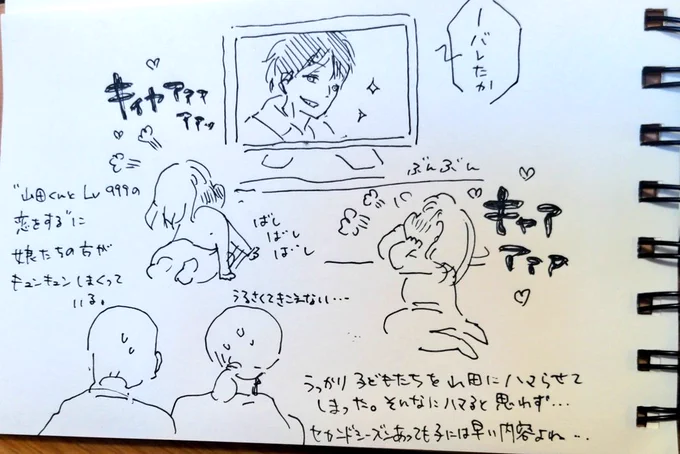 ーバレたか
キィヤアアア
アアッ
"山田くんとLv999の
恋をする"に
娘たちの方が
キュンキュンしまくって
いる。
ばし
ばし
ばし
ぶんぶん
キャア
アアア
うるさくてきこえない…
うっかり子どもたちを山田にハマらせて
しまった。そんなにハマると思わず…
セカンドシーズンあっても子には早い内容よね…